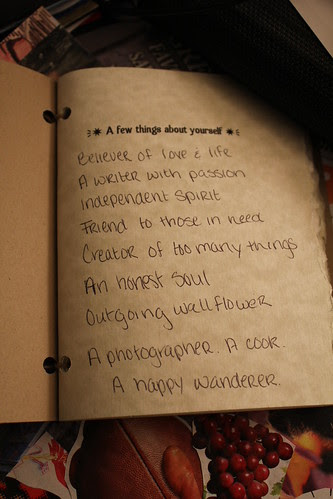 A few things about yourself
Believer of love & life
A writer with passion
Independent spirit
Friend to those in need
Creator of too many things
An honest soul
Outgoing wallflower
A photographer. A cook.
A happy wanderer.